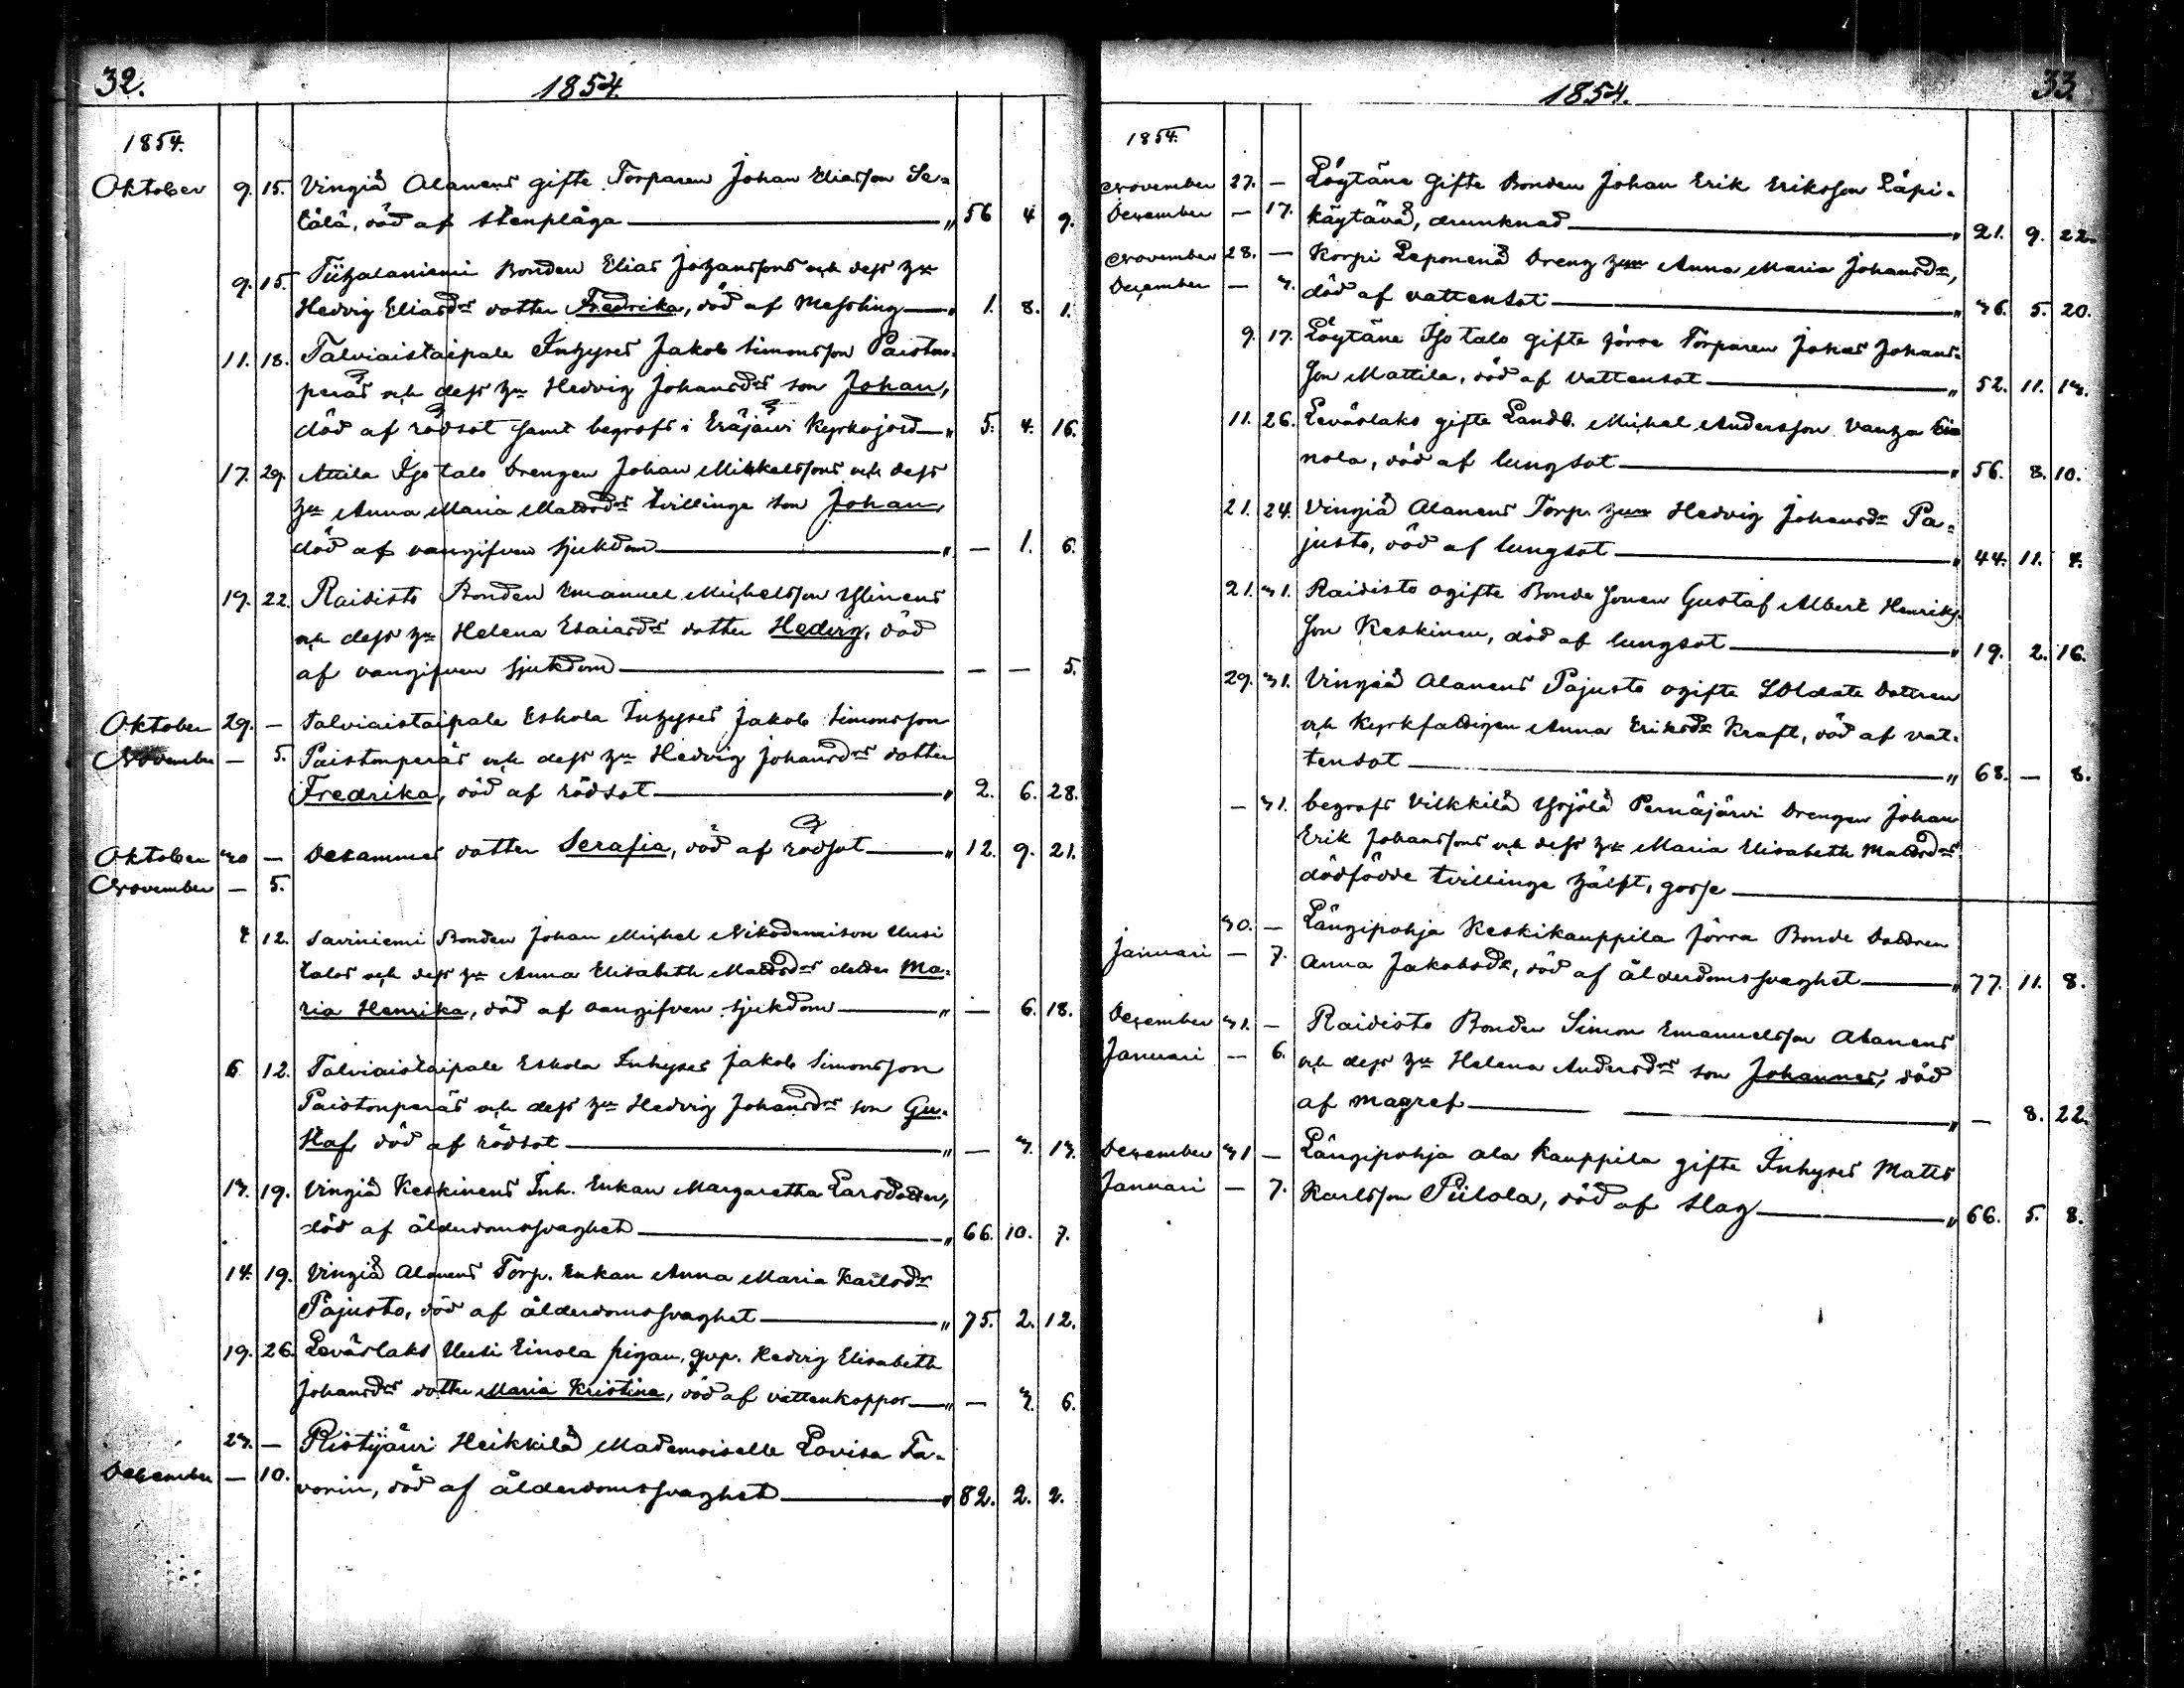 32.
1854.
1854.
Oktober 9. 15. Vingiä Alanens gifte Torparen Johan Eliasson Se-
tälä, död af stenplåga — " 56 4 9.
9. 15. Tiihalaniemi Bonden Elias Johanssons och dess hu
Hedvig Eliasdrs dotter Fredrika, död af Messling — " 1. 8. 1.
11. 18. Talviaistaipale Inhyses Jakob Simonsson Paiston-
peräs och dess hu Hedvig Johansdrs son Johan,
död af rödsot samt begrafs i Eräjärvi Kyrkojord — " 5. 4. 16.
17. 29. Attila Iso talo Drengen Johan Mikkelssons och dess
hu Anna Maria Matsdrs tvillinge son Johan,
död af oangifven sjukdom — " — 1. 6.
19. 22. Raidisto Bonden Emanuel Michelsson Ylinens
och dess hu Helena Esaiasdrs dotter Hedvig, död
af oangifven sjukdom — — — 5.
Oktober 29. — Talviaistaipale Eskola Inhyses Jakob Simonsson
November — 5. Paistonperäs och dess hu Hedvig Johansdrs dotter
Fredrika, död af rödsot — " 2. 6. 28.
Oktober 30 — Desammes dotter Serafia, död af rödsot — " 12. 9. 21.
November — 5.
4 12. Saviniemi Bonden Johan Michel Nikodemison Uusi
talos och dess hu Anna Elisabeth Matsdrs dotter Ma-
ria Henrika, död af oangifven sjukdom — " — 6. 18.
6 12. Talviaistaipale Eskola Inhyses Jakob Simonsson
Paistonperäs och dess hu Hedvig Johansdrs son Gu-
staf, död af rödsot — " — 3. 13.
13. 19. Vingiä Keskinens Inh. Enkan Margaretha Larsdotter,
död af ålderdomssvaghet — " 66. 10. 7.
14. 19. Vingiä Alanens Torp. Enkan Anna Maria Karlsdr
Pajusto, död af ålderdomssvaghet — " 75. 2. 12.
19. 26. Leväslaks Uusi Einola pigan, qvp. Hedvig Elisabeth
Johansdrs dotter Maria Kristina, död af vattenkoppor — " — 3. 6.
23. — Ristijärvi Heikkilä Mademoiselle Lovisa Fa-
December — 10. vorin, död af ålderdomssvaghet — " 82. 2. 2.
33.
1854.
1854.
November 27. — Löytäne gifte Bonden Johan Erik Eriksson Läpi-
December — 17. käytävä, drunknad — " 21. 9. 22.
November 28. — Korpi Leponens Dreng hun Anna Maria Johansdr,
December — 3. död af vattensot — " 36. 5. 20.
9. 17. Löytäne Iso talo gifte förre Torparen Johan Johans-
son Mattila, död af vattensot — " 52. 11. 13.
11. 26. Leväslaks gifte Landb. Michel Andersson Vanha Ei-
nola, död af lungsot — " 56. 8. 10.
21. 24. Vingiä Alanens Torp. hun Hedvig Johansdr Pa-
justo, död af lungsot — " 44. 11. 4.
21. 31. Raidisto ogifte Bonde sonen Gustaf Albert Henriks-
son Keskinen, död af lungsot — " 19. 2. 16.
29. 31. Vingiä Alanens Pajusto ogifte Soldate dottren
och Kyrkfattigen Anna Eriksdr Kraft, död af vat-
tensot — " 68. — 8.
— 31. begrafs Vilkkilä Yrjölä Pernäjärvi Drengen Johan
Erik Johanssons och dess hu Maria Elisabeth Matsdrs
dödfödde tvillinge hälft, gosse —
30. — Längipohja Keskikauppila förra Bonde Dottren
Januari — 7. Anna Jakobsdr, död af ålderdomssvaghet — " 77. 11. 8.
December 31. — Raidisto Bonden Simon Emanuelsson Alanens
Januari — 6. och dess hu Helena Andersdrs son Johannes, död
af magref — " — 8. 22.
December 31 — Längipohja Ala Kauppila gifte Inhyses Matts
Januari — 7. Karlsson Piilola, död af slag — " 66. 5. 8.